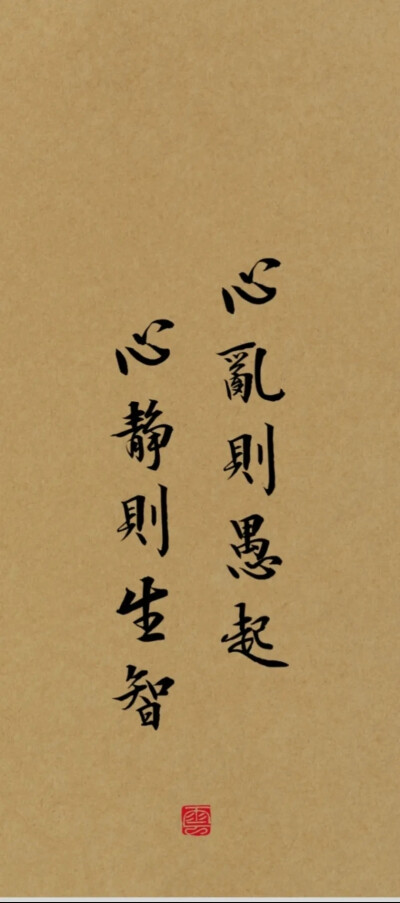 心亂則愚起
心靜則生智